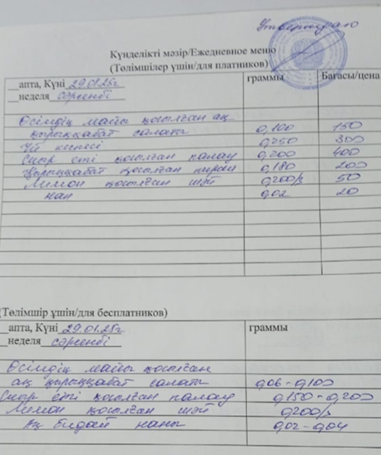 Утверждаю
Күнделікті мәзір/Ежедневное меню
(Төлімшілер үшін/для платников)
__апта, Күні 29.01.25г граммы Бағасы/цена
__неделя сәрсенбі
Өсімдік майы қосылған ақ
қырыққабат салаты 0,100 150
Үй кеспесі 0,250 300
Сиыр еті қосылған палау 0,200 400
Қырыққабат қосылған пирог 0,180 200
Лимон қосылған шай 0,200/5 50
нан 0,02 20
(Төлімшір үшін/для бесплатников)
__апта, Күні 29.01.25г граммы
__неделя сәрсенбі
Өсімдік майы қосылған
ақ қырыққабат салаты 0,06-0,100
Сиыр еті қосылған палау 0,150-0,200
Лимон қосылған шай 0,200/5
Ақ бидай наны 0,02-0,04